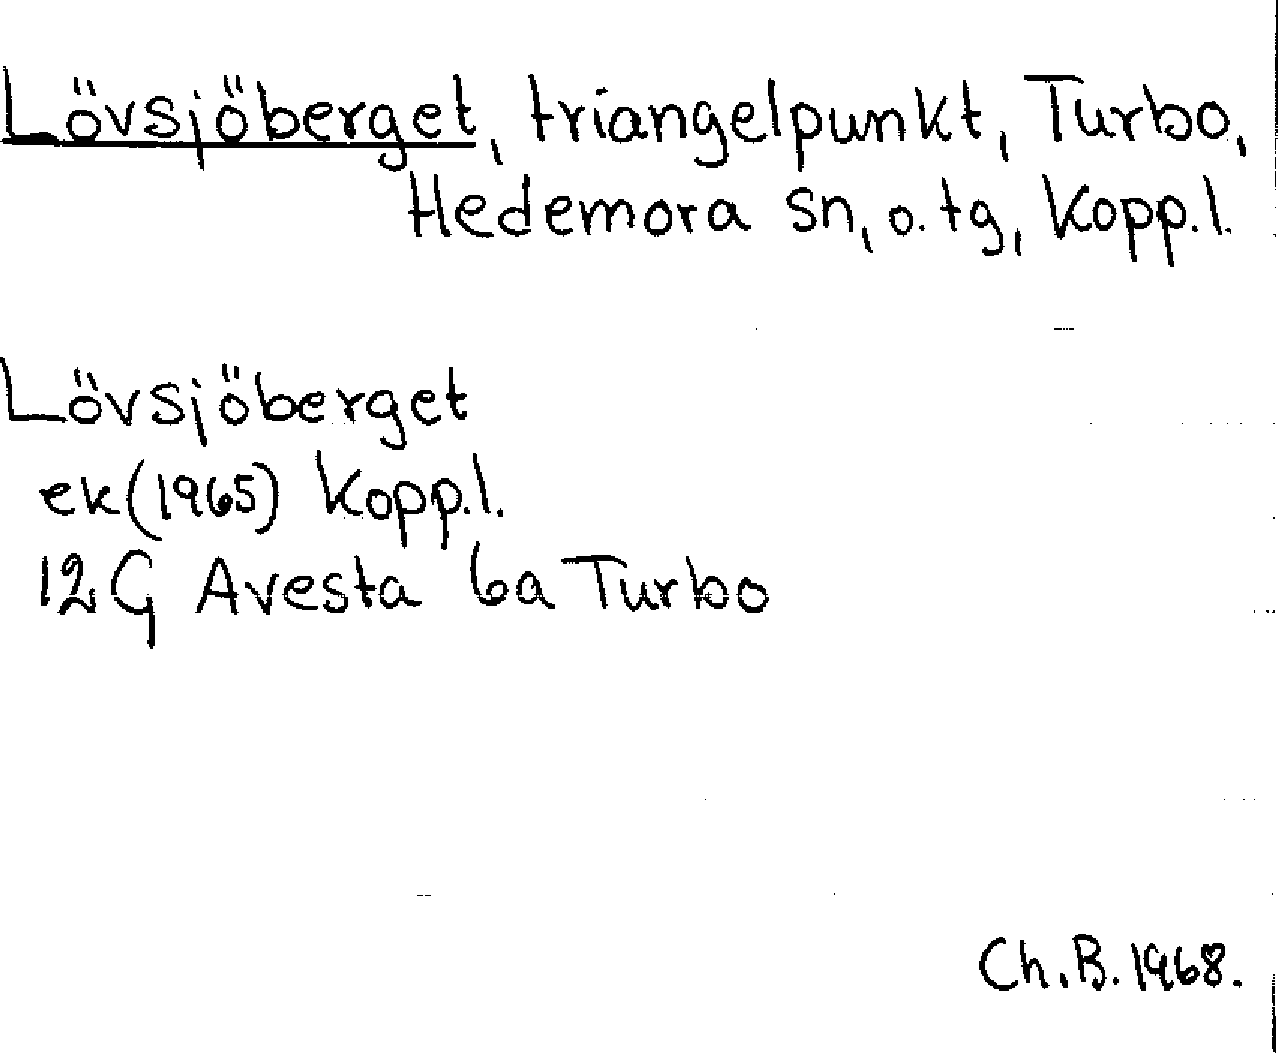 Lövsjöberget, triangelpunkt, Turbo,
Hedemora sn, o. tg, Kopp.l.
Lövsjöberget
ek(1965) Kopp.l.
12G Avesta 6a Turbo
Ch.B. 1968.